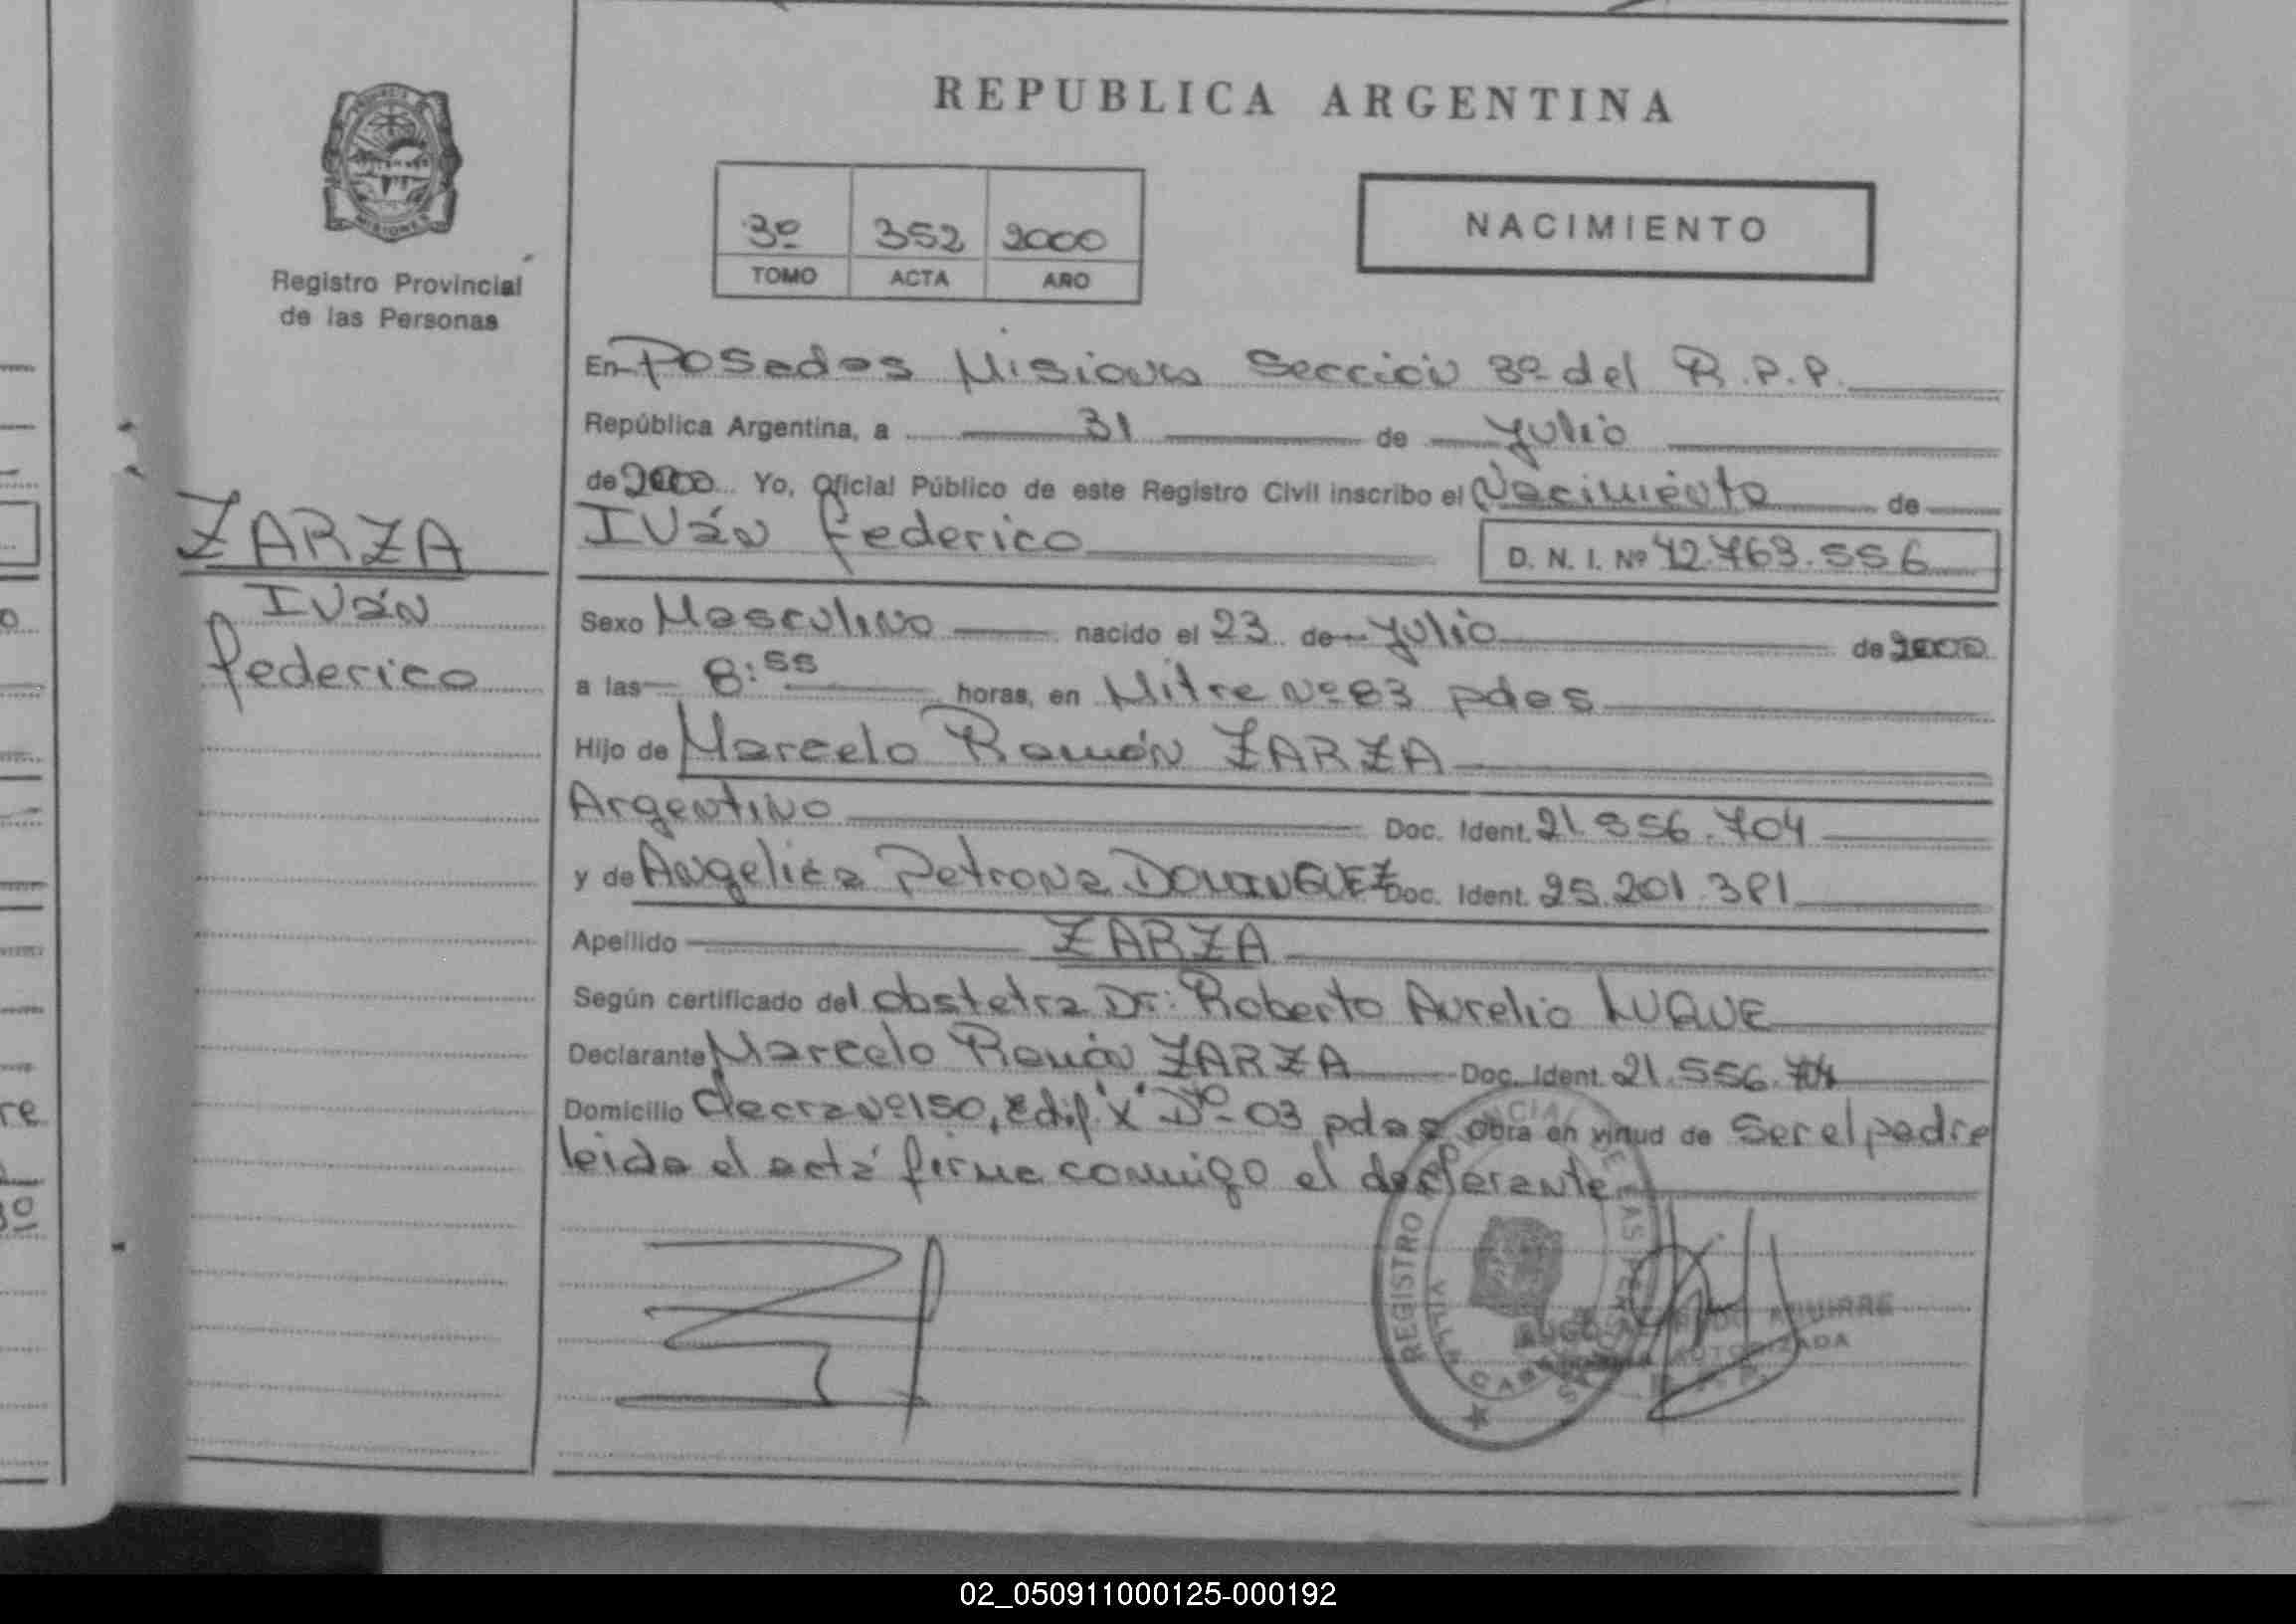 REPUBLICA ARGENTINA
3º 352 2000
TOMO ACTA AÑO
NACIMIENTO
PROVINCIA DE MISIONES
Registro Provincial
de las Personas
ZARZA
Iván
federico
En Posadas Misiones Sección 3º del R.P.P.
República Argentina, a 31 de Julio
de 2000 Yo, Oficial Público de este Registro Civil inscribo el Nacimiento de
Iván federico
D. N. I. Nº 42.763.556
Sexo Masculino nacido el 23 de Julio de 2000
a las 8:55 horas, en Mitre Nº 83 pdas
Hijo de Marcelo Ramón ZARZA
Argentino Doc. Ident. 21.556.704
y de Angelica Petrona DOMINGUEZ Doc. Ident. 25.201.381
Apellido ZARZA
Según certificado del obstetra Dr: Roberto Aurelio LUQUE
Declarante Marcelo Ramón ZARZA Doc. Ident. 21.556.704
Domicilio Nº 150, Edif. "X" Dto- 03 pdas Obra en virtud de Ser el padre
leida el acta firma conmigo el declarante
REGISTRO PROVINCIAL DE LAS PERSONAS
VILLA CABELLO
AGUIRRE
AUTORIZADA
02_050911000125-000192